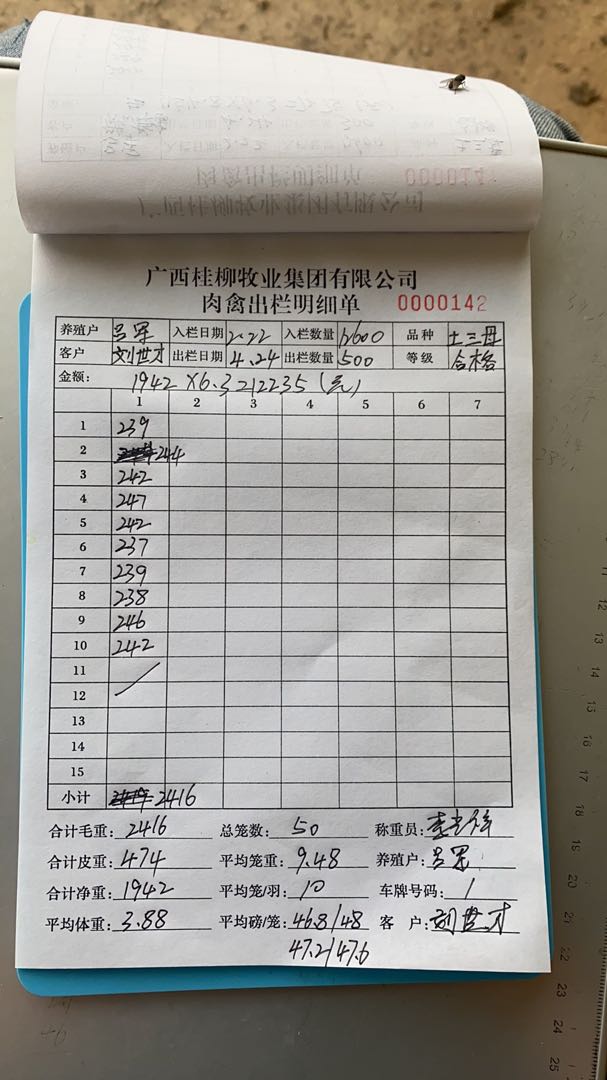 广西桂柳牧业集团有限公司
肉禽出栏明细单 0000142
养殖户 吕军 入栏日期 2.22 入栏数量 12600 品种 土三母
客户 刘世才 出栏日期 4.24 出栏数量 500 等级 合格
金额: 1942 X6.3 12235 (元)
1 2 3 4 5 6 7
1 239
2 244
3 242
4 247
5 242
6 237
7 239
8 238
9 246
10 242
11
12
13
14
15
小计 2416
合计毛重: 2416 总笼数: 50 称重员:
合计皮重: 474 平均笼重: 9.48 养殖户: 吕军
合计净重: 1942 平均笼/羽: 10 车牌号码: /
平均体重: 3.88 平均磅/笼: 46.8/48 客 户: 刘世才
47.2/47.6